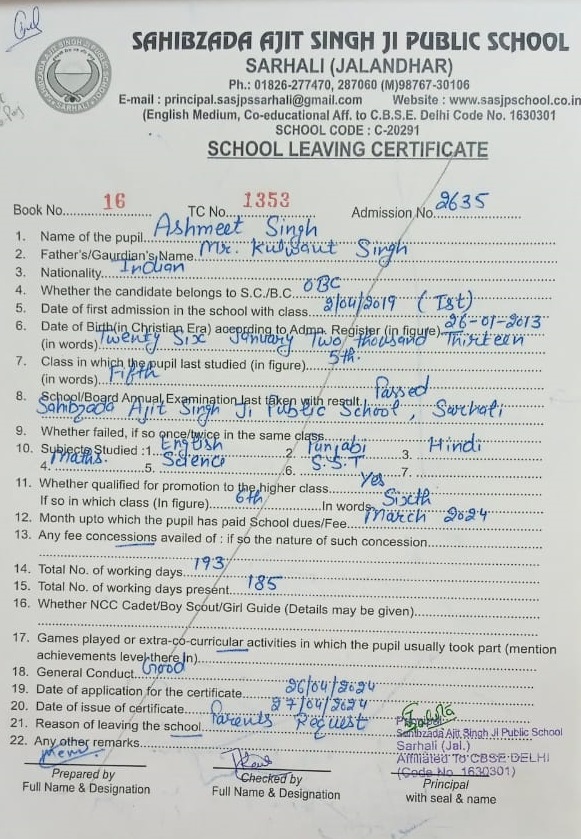 SAHIBZADA AJIT SINGH JI PUBLIC SCHOOL
SARHALI (JALANDHAR)
Ph.: 01826-277470, 287060 (M)98767-30106
E-mail : principal.sasjpssarhali@gmail.com Website : www.sasjpschool.co.in
(English Medium, Co-educational Aff. to C.B.S.E. Delhi Code No. 1630301
SCHOOL CODE : C-20291
SCHOOL LEAVING CERTIFICATE
Book No. 16 TC No. 1353 Admission No. 2635
1. Name of the pupil Ashmeet Singh
2. Father's/Gaurdian's Name Mr. Kulwant Singh
3. Nationality Indian
4. Whether the candidate belongs to S.C./B.C. OBC
5. Date of first admission in the school with class 2/04/2019 (Ist)
6. Date of Birth(in Christian Era) according to Admn. Register (in figure) 26-01-2013
(in words) Twenty Six January Two thousand Thirteen
7. Class in which the pupil last studied (in figure) 5th.
(in words) Fifth
8. School/Board Annual Examination last taken with result. Passed
Sahibzada Ajit Singh Ji Public School, Sarhali
9. Whether failed, if so once/twice in the same class
10. Subjects Studied :1. English 2. Punjabi 3. Hindi
4. Maths. 5. Science 6. S.S.T 7.
11. Whether qualified for promotion to the higher class Yes
If so in which class (In figure) 6th In words Sixth
12. Month upto which the pupil has paid School dues/Fee March 2024
13. Any fee concessions availed of : if so the nature of such concession
14. Total No. of working days 193
15. Total No. of working days present 185
16. Whether NCC Cadet/Boy Scout/Girl Guide (Details may be given)
17. Games played or extra-co-curricular activities in which the pupil usually took part (mention
achievements level there in)
18. General Conduct Good
19. Date of application for the certificate 26/04/2024
20. Date of issue of certificate 27/04/2024
21. Reason of leaving the school Parents Request
22. Any other remarks
Principal
Sahibzada Ajit Singh Ji Public School
Sarhali (Jal.)
Affiliated To CBSE DELHI
(Code No. 1630301)
Prepared by Checked by Principal
Full Name & Designation Full Name & Designation with seal & name